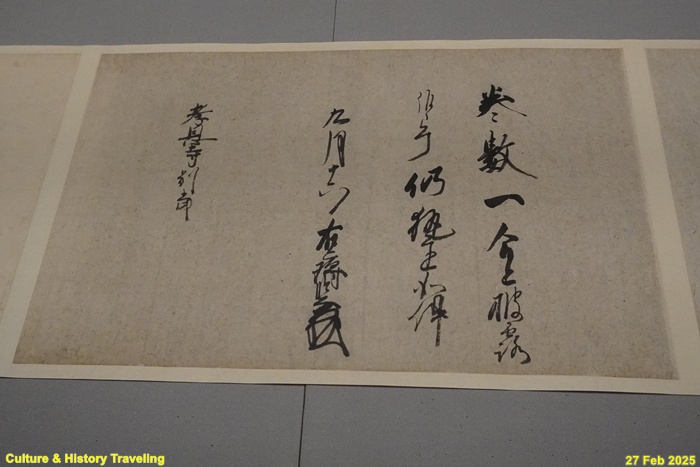 巻数一合令披露
候了仍執達如件
九月十六 右衛門尉
孝恩寺別当
Culture & History Traveling
27 Feb 2025